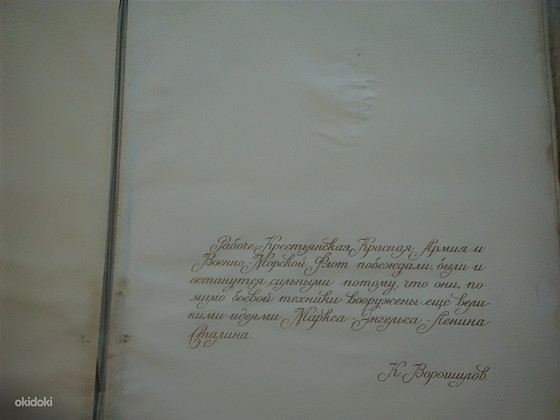 Рабоче-Крестьянская Красная Армия и
Военно-Морской Флот побеждали, были и
останутся сильными потому, что они, по-
мимо боевой техники вооружены еще вели-
кими идеями Маркса-Энгельса-Ленина
Сталина
К. Ворошилов.
okidoki